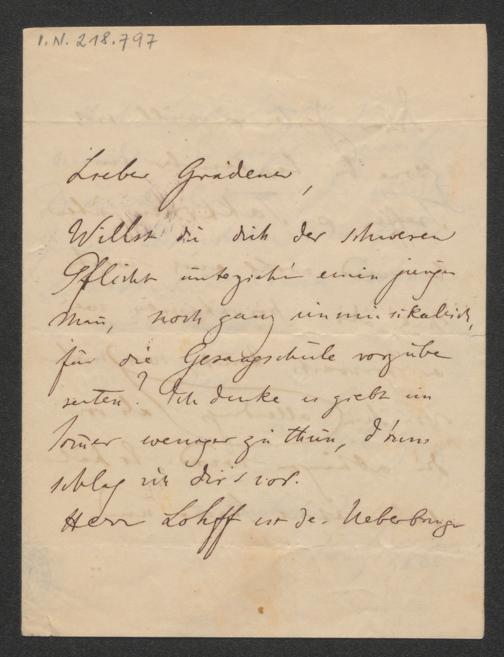 I.N. 218.797
Lieber Grädener,
Willst du dich der schweren
Pflicht unterziehn einen jungen
Mann, noch ganz unmusikalisch,
für die Gesangschule vorzube
reiten? Ich denke es giebt im
Sommer weniger zu thun, d'rum
schlag ich dir's vor.
Herr Lohff ist der Ueberbringer